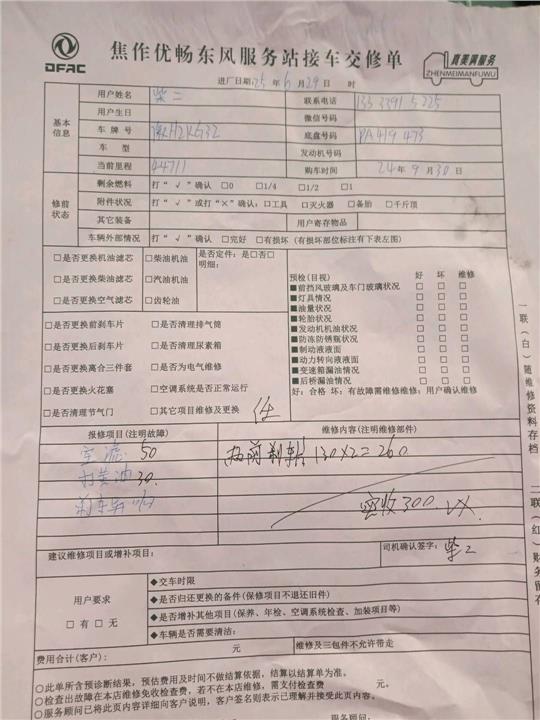 DFAC
焦作优畅东风服务站接车交修单
真美满服务
ZHENMEIMANFUWU
进厂日期:25年6月29日 时
基本信息
用户姓名 柴二 联系电话
用户生日 微信号码
车牌号 底盘号码 PA419473
车型 发动机号码
当前里程 44711 购车时间 24年9月30日
修前状态
剩余燃料 打“√”确认 □0 □1/4 □1/2 □1
附件状况 打“√”或打“×”确认:□工具 □灭火器 □备胎 □千斤顶
其它装备 用户寄存物品
车辆外部情况 打“√”确认 □完好 □有损坏(有损坏部位标注有下表左图)
□是否更换机油滤芯 □柴油机油 是否定件:是□否□
明细:
□是否更换柴油滤芯 □汽油机油
□是否更换空气滤芯 □齿轮油
□是否更换前刹车片 □是否清理排气筒
□是否更换后刹车片 □是否清理尿素箱
□是否更换离合三件套 □是否为电气维修
□是否更换火花塞 □空调系统是否正常运行
□是否清理节气门 □其它项目维修及更换
预检(目视) 好 坏 维修
■前挡风玻璃及车门玻璃状况 □ □ □
■灯具情况 □ □ □
■油量状况 □ □ □
■轮胎状况 □ □ □
■发动机机油状况 □ □ □
■防冻防锈瓶状况 □ □ □
■制动液液面 □ □ □
■动力转向液液面 □ □ □
■变速箱漏油情况 □ □ □
■后桥漏油情况 □ □ □
好:合格 坏:有故障需维修维修:用户确认维修
报修项目(注明故障) 维修内容(注明维修部件)
空滤 50 前刹车片 130×2=260
柴油 30.
刹车片
实收300
建议维修项目或增补项目:
司机确认签字: 柴二
用户要求
□有 □无
◆交车时限
◆是否归还更换的备件(保修项目不退还旧件)
◆是否增补其他项目(保养、年检、空调系统检查、加装项目等)
◆车辆是否需要清洁:
费用合计(客户): 元 维修及三包件不允许带走
○此单所含预诊断结果,预估费用及时间不做结算依据,结算以结算单为准。
○检查出故障在本店维修免收检查费,若不在本店维修,需支付检查费 元。
○服务顾问已将此页内容详细向客户说明,客户签名则表示已理解并接受此页内容。
服务顾问:
一联(白)随维修资料存档
二联(红)财务留存